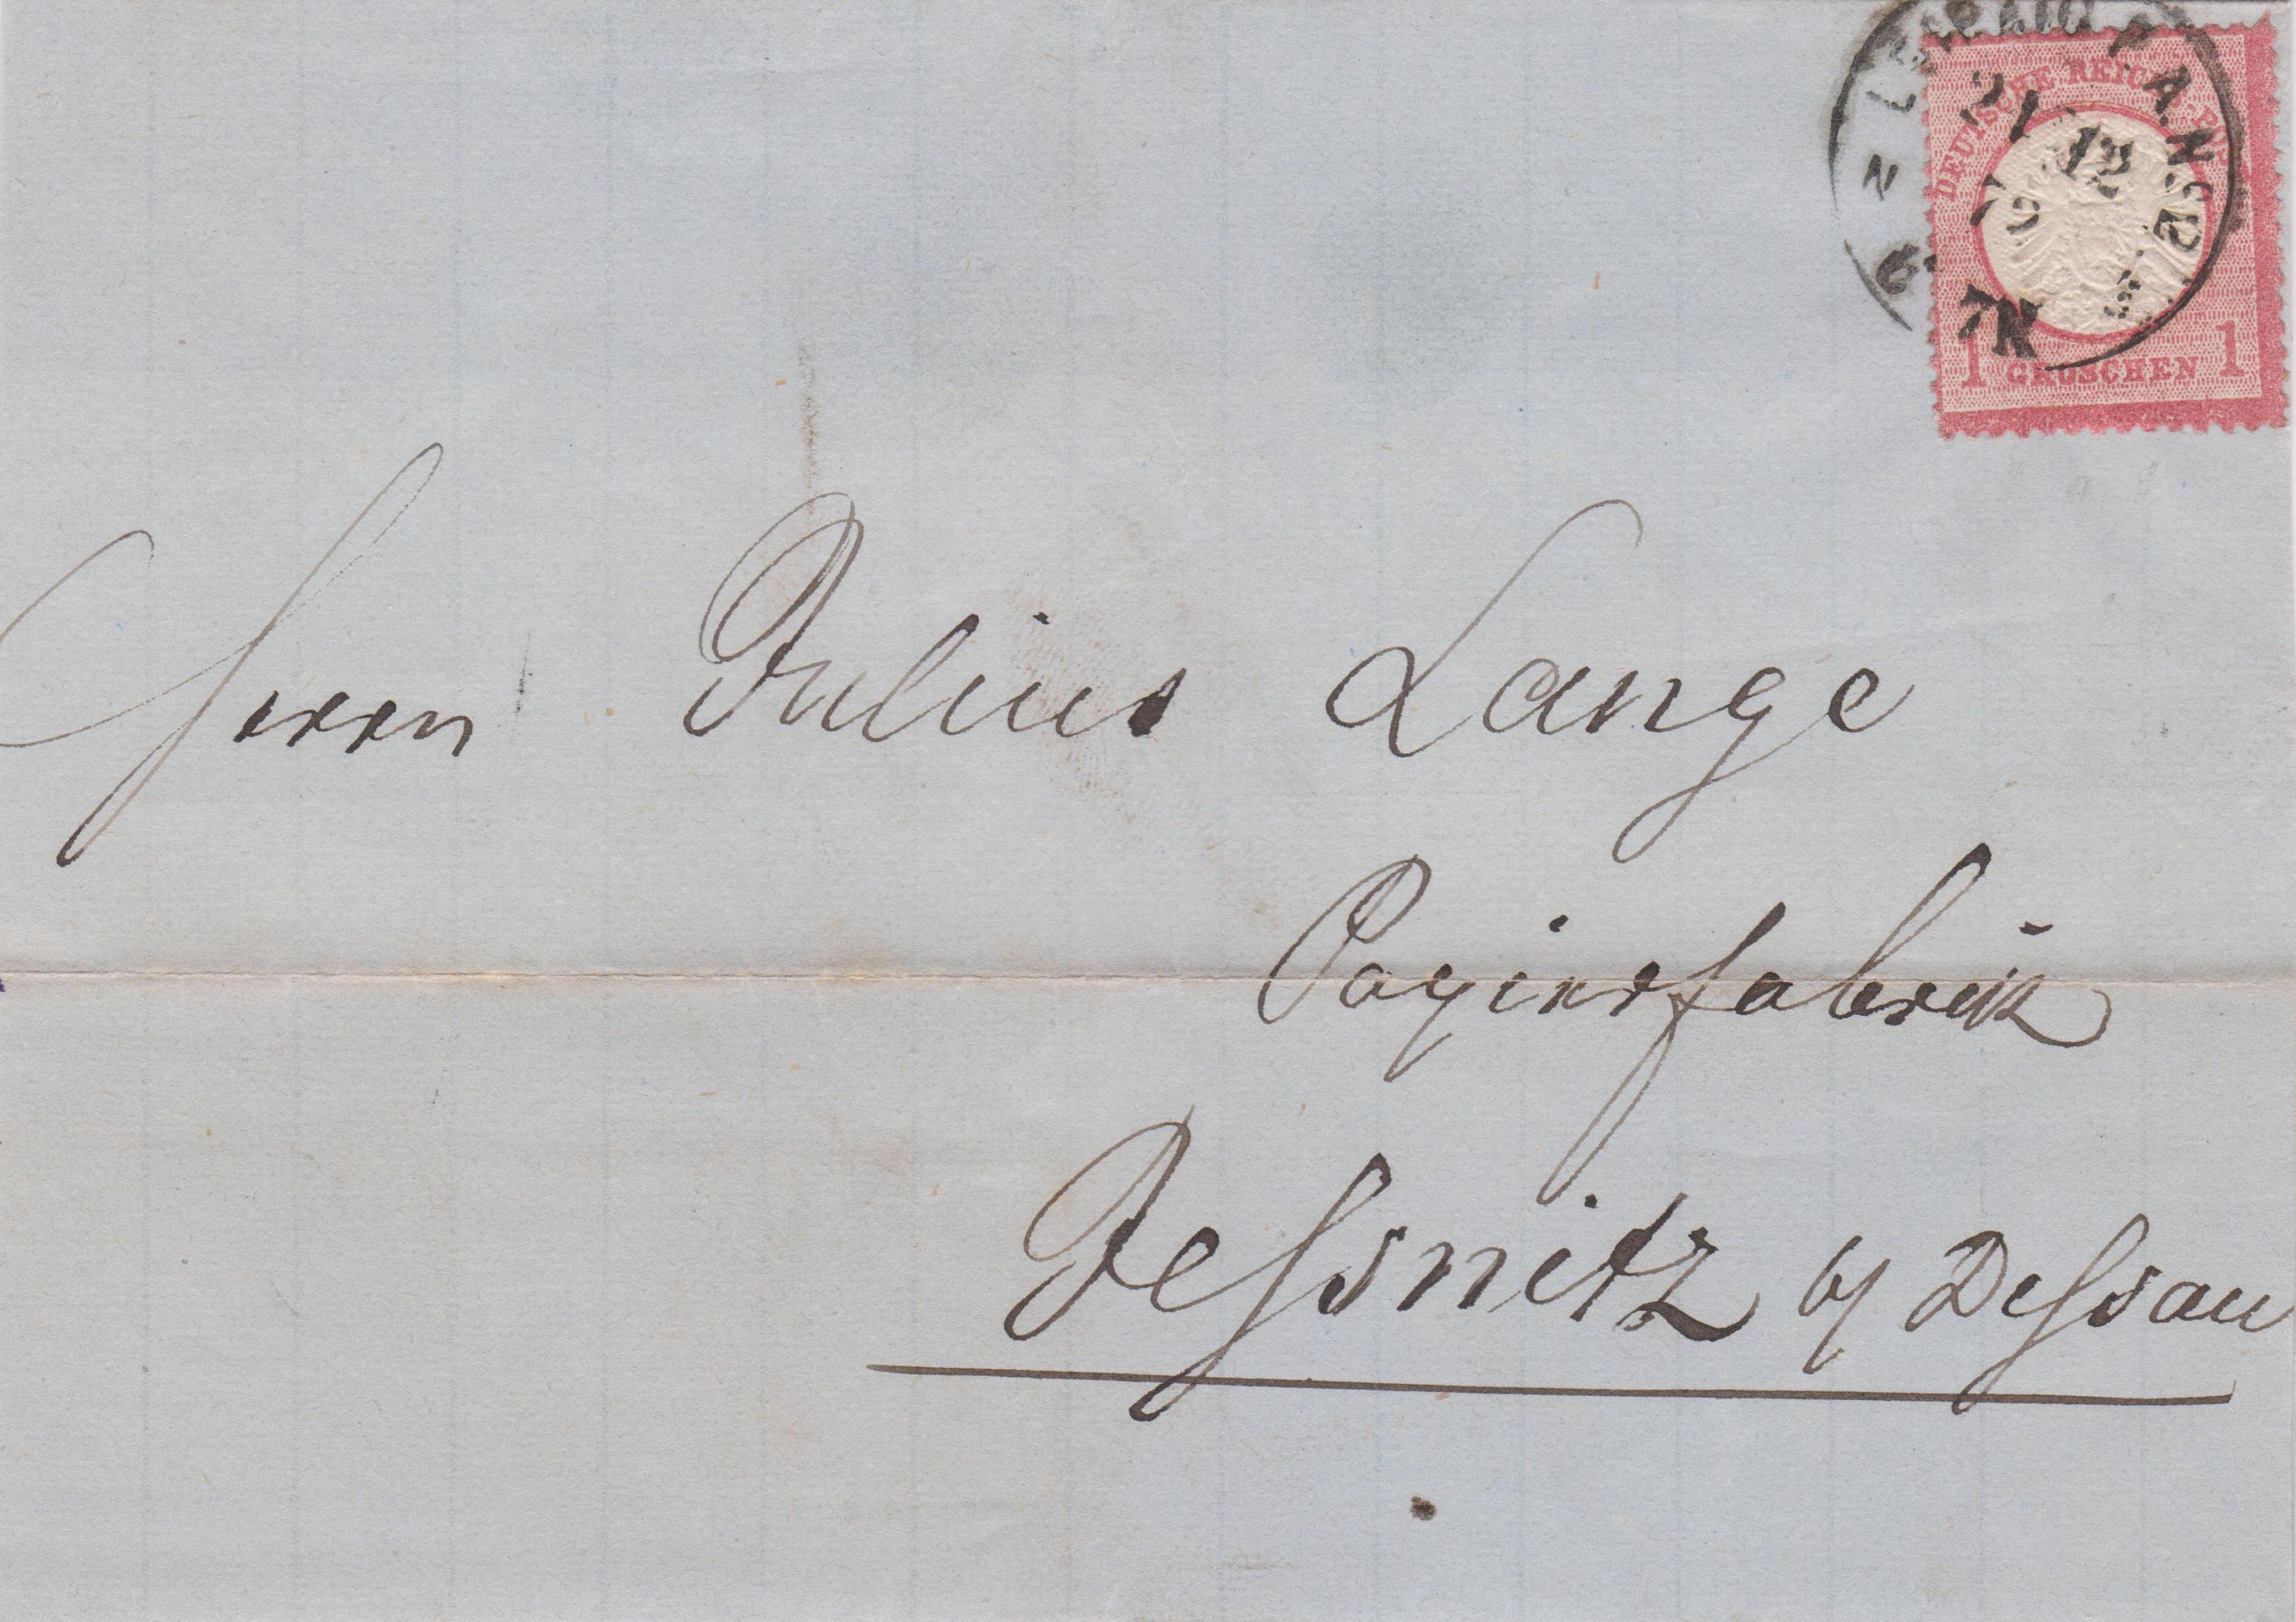 LEIPZIG P.A.N.2
21 12
7N
DEUTSCHE REICHS-POST
1 GROSCHEN 1
Herrn Julius Lange
Papierfabrik
Jessnitz b/ Dessau